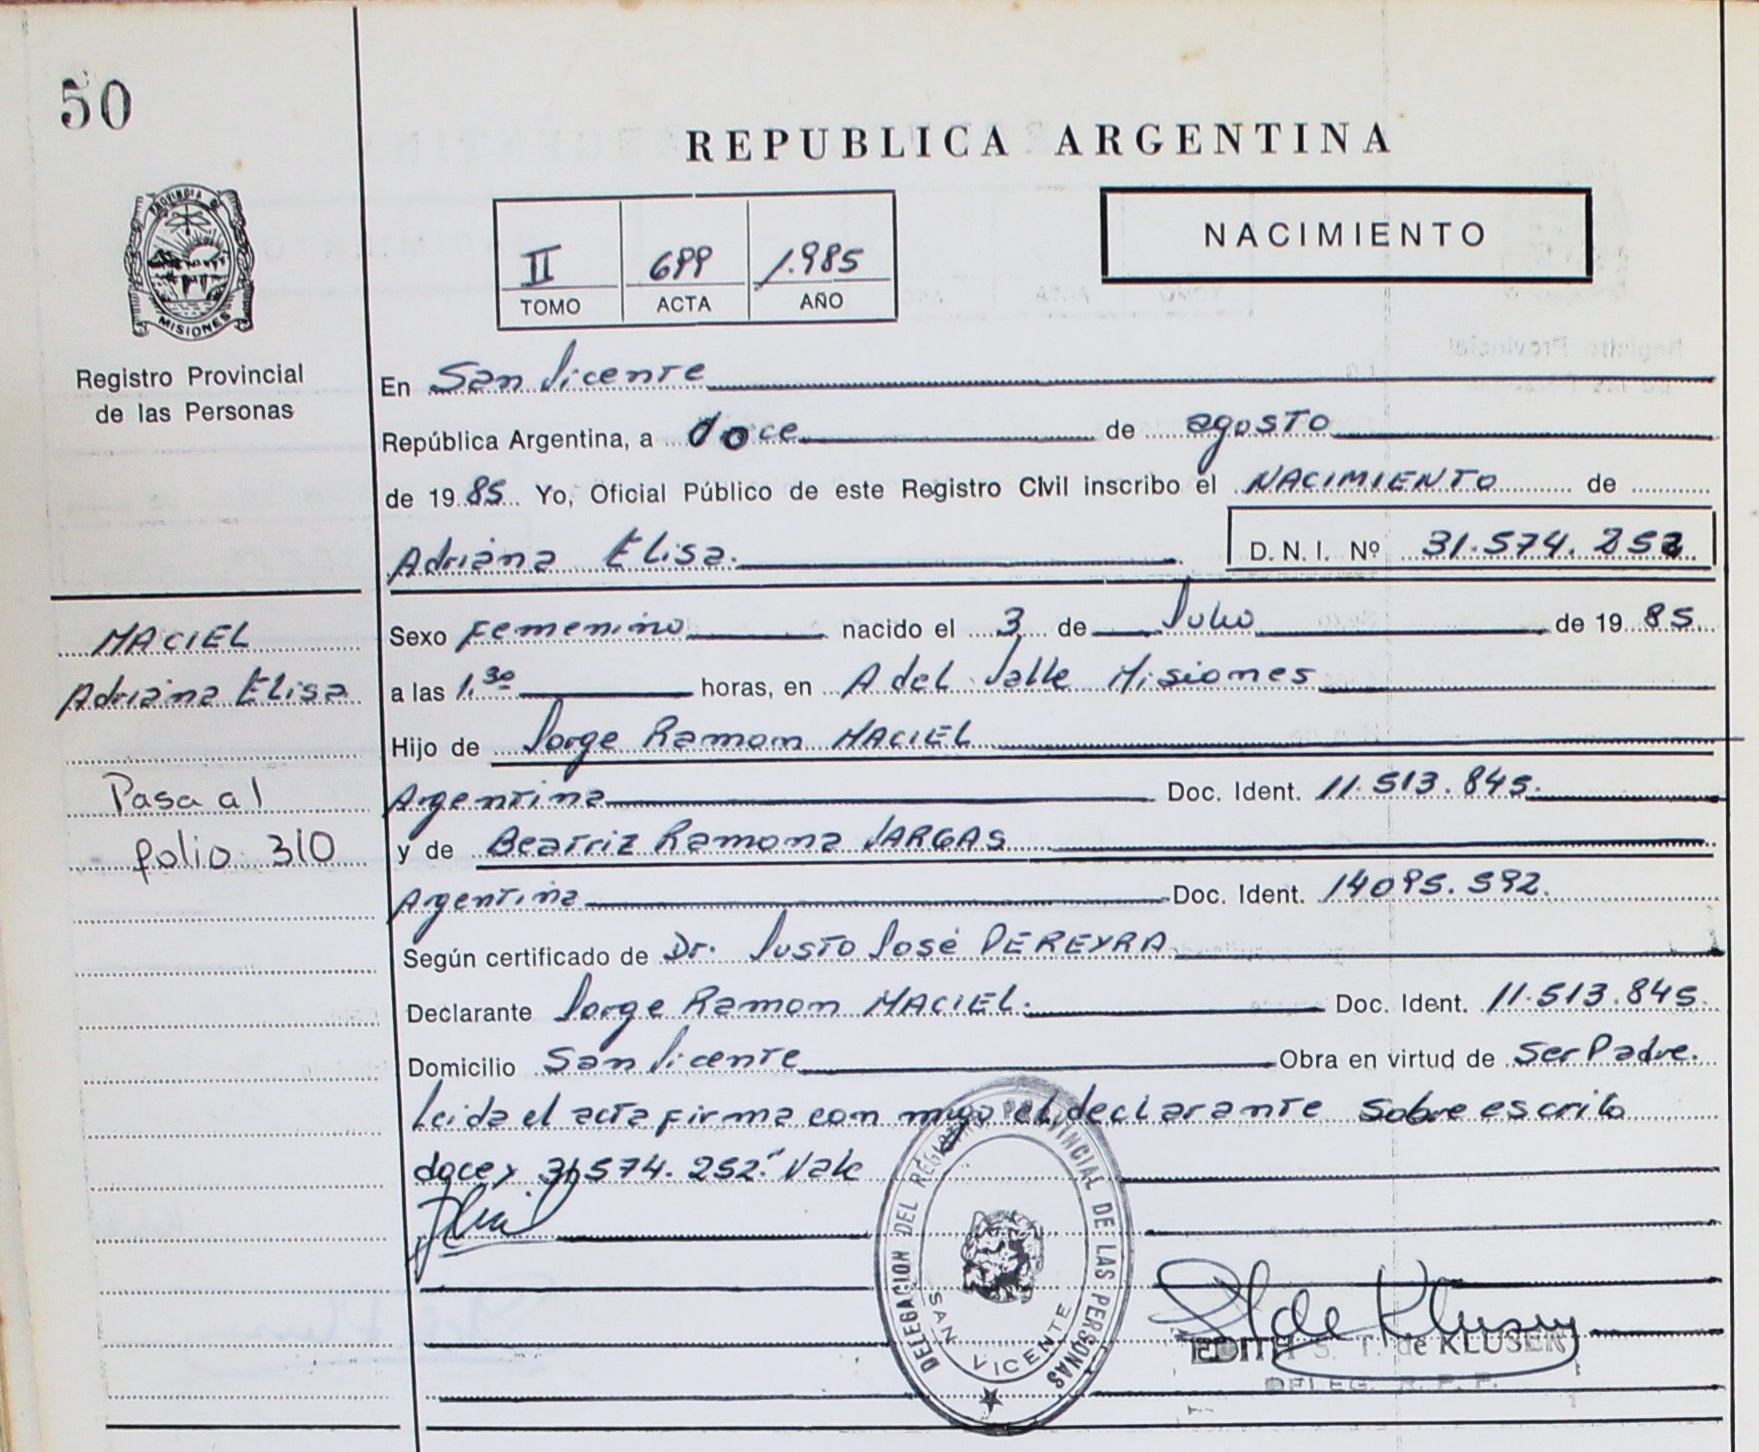 50
REPUBLICA ARGENTINA
PROVINCIA D
MISIONES
Registro Provincial
de las Personas
II 699 1.985
TOMO ACTA AÑO
NACIMIENTO
En San Vicente
República Argentina, a doce de agosto
de 19 85 Yo, Oficial Público de este Registro Civil inscribo el NACIMIENTO de
Adriana Elisa. D.N.I. Nº 31.574.252
MACIEL
Adriana Elisa
Pasa al
folio 310
Sexo Femenino nacido el 3 de Julio de 19 85
a las 1.30 horas, en A del Valle Misiones
Hijo de Jorge Ramon MACIEL
Argentina Doc. Ident. 11.513.845.
y de Beatriz Ramona VARGAS
Argentina Doc. Ident. 14095.592.
Según certificado de Dr. Justo José PEREYRA
Declarante Jorge Ramon MACIEL. Doc. Ident. 11.513.845
Domicilio San Vicente Obra en virtud de Ser Padre.
Leida el acta firma con migo el declarante Sobre escrito
doce y 31.574.252." Vale
DELEGACION DEL REGISTRO PROVINCIAL DE LAS PERSONAS
SAN VICENTE
EDITH S. T. de KLUSER
DELEG. R. P. P.